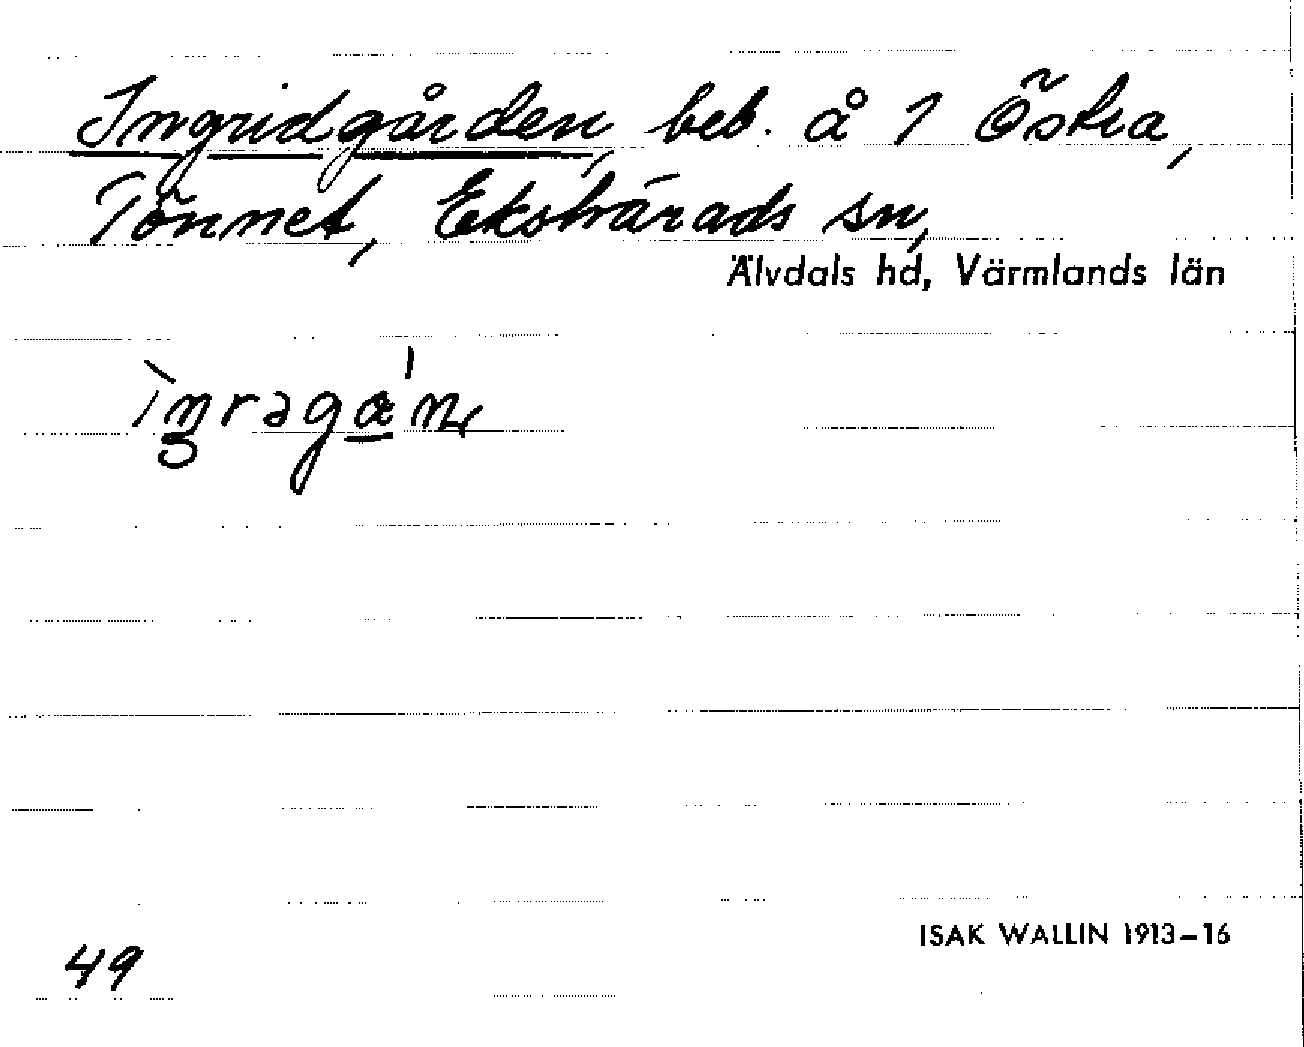 Ingridgården, beb. å 1 Östra,
Tönnet, Ekshärads sn,
Älvdals hd, Värmlands län
49
ISAK WALLIN 1913–16